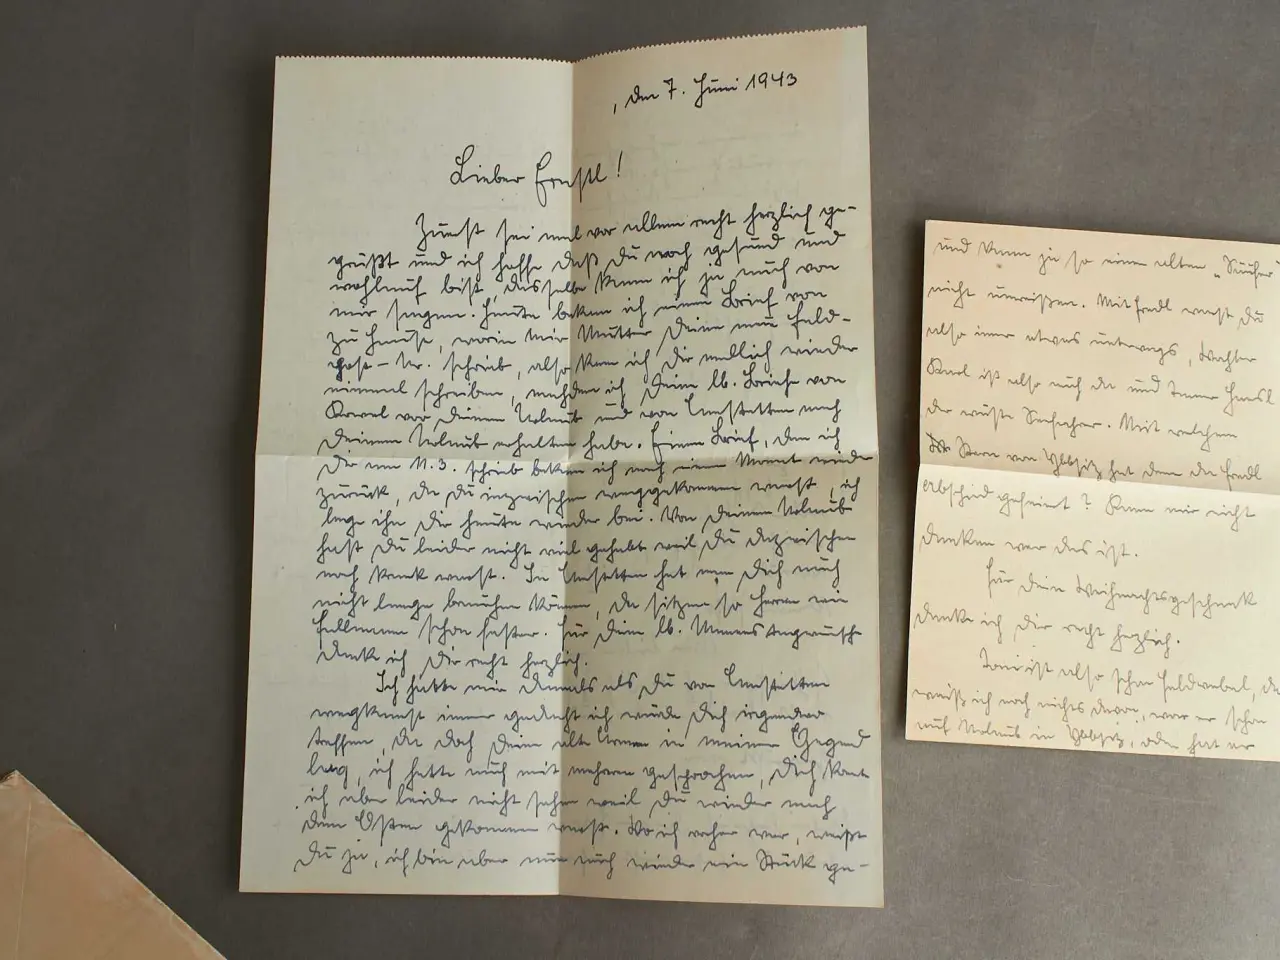 , den 7. Juni 1943
Lieber Ernstl!
Zuerst sei mal vor allem recht herzlich ge-
grüßt und ich hoffe daß Du noch gesund und
wohlauf bist, dasselbe kann ich ja auch von
mir sagen. Heute bekam ich einen Brief von
zu Hause, worin mir Mutter Deine neue Feld-
post-Nr. schrieb, also kann ich Dir endlich wieder
einmal schreiben, nachdem ich Deine lb. Briefe von
vor Deinem Urlaub und von Amstetten nach
Deinem Urlaub erhalten habe. Einen Brief, den ich
Dir am 11.3. schrieb bekam ich nach einem Monat wieder
zurück, da Du inzwischen weggekommen warst, ich
lege ihn Dir heute wieder bei. Von Deinem Urlaub
hast Du leider nicht viel gehabt weil Du dazwischen
noch krank warst. In Amstetten hat man Dich auch
nicht lange brauchen können, da sitzen so Herren wie
schon fester. Für Deine lb. Namenstagswünsche
danke ich Dir recht herzlich.
Ich hatte mir damals als Du von Amstetten
wegkamst immer gedacht ich würde Dich irgendwo
treffen, da doch Deine alte Armee in meiner Gegend
lag, ich hatte auch mit mehreren gesprochen, Dich konnte
ich aber leider nicht sehen weil Du wieder nach
dem Osten gekommen warst. Wo ich vorher war, weißt
Du ja, ich bin aber nun auch wieder ein Stück ge-
und kann ja so einen alten „
nicht umreißen. Mit Fredl warst Du
also immer etwas unterwegs,
Karl ist also auch da und Hansl
der Mit welchem
von Ybbsitz hat denn der Fredl
Abschied gefeiert? Kann mir nicht
denken wer das ist.
Für Dein Weihnachtsgeschenk
danke ich Dir recht herzlich.
Toni ist also schon Feldwebel, da
weiß ich noch nichts davon, war er schon
auf Urlaub in Ybbsitz, oder hat er